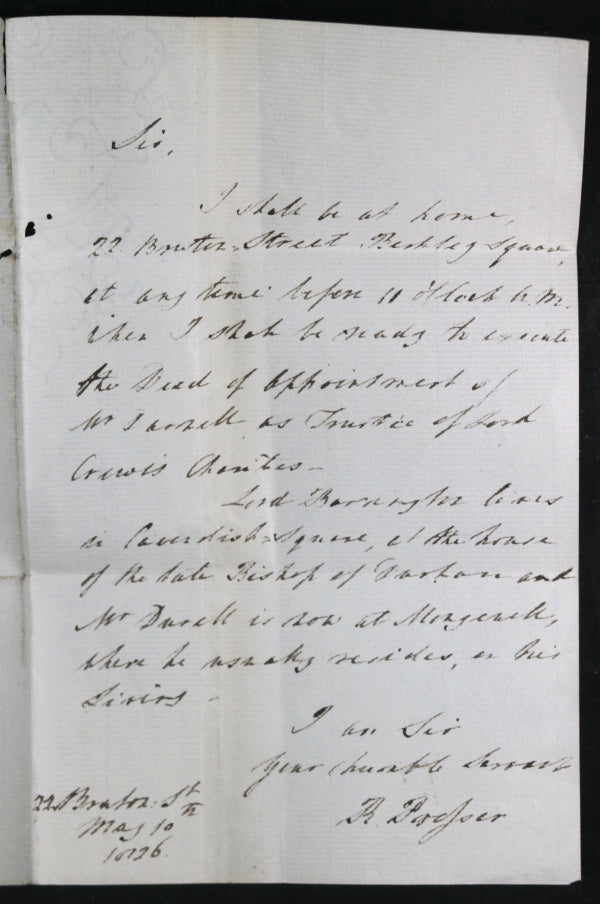 Sir,
I shall be at home,
22 Bruton-Street Berkley Square,
at any time before 11 o'Clock A.M.
when I shall be ready to execute
the Deed of Appointment of
Mr Darnell as Trustee of Lord
Crewes Charities—
Lord Barrington lives
in Cavendish-Square, at the house
of the late Bishop of Durham and
Mr Durell is now at Mongewell,
where he usually resides, on his
Living—
I am Sir
Your humble Servant
R Prosser
22 Bruton St
May 10th
1826.